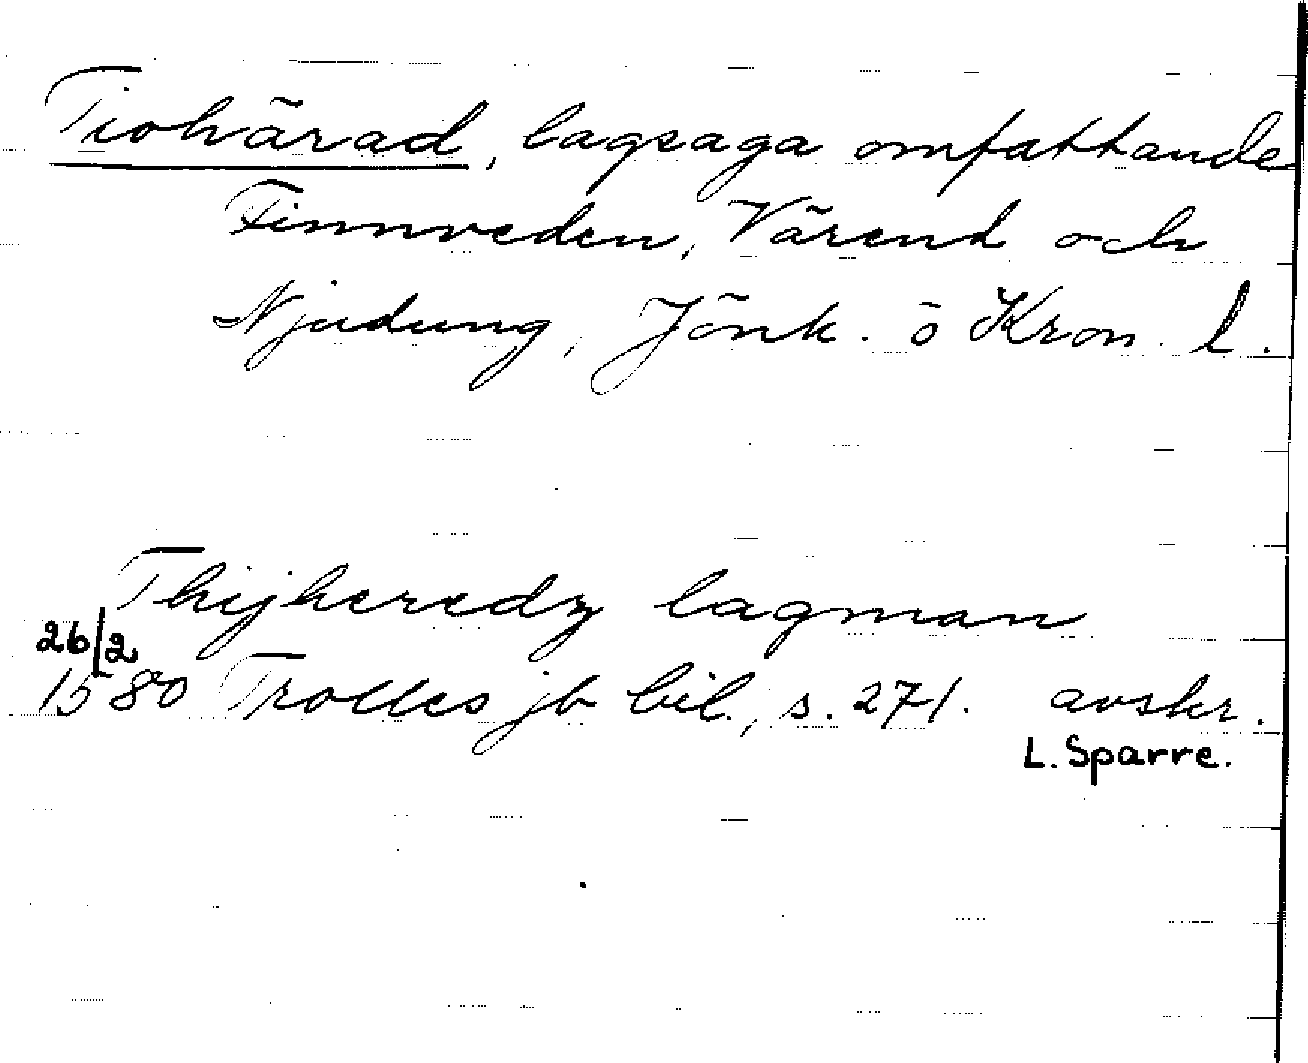 Tiohärad, lagsaga omfattande
Finnveden, Värend och
Njudung, Jönk. o Kron. l.
Thijheredz lagman
26/2
1580 Trolles jb bil., s. 271. avskr.
L. Sparre.